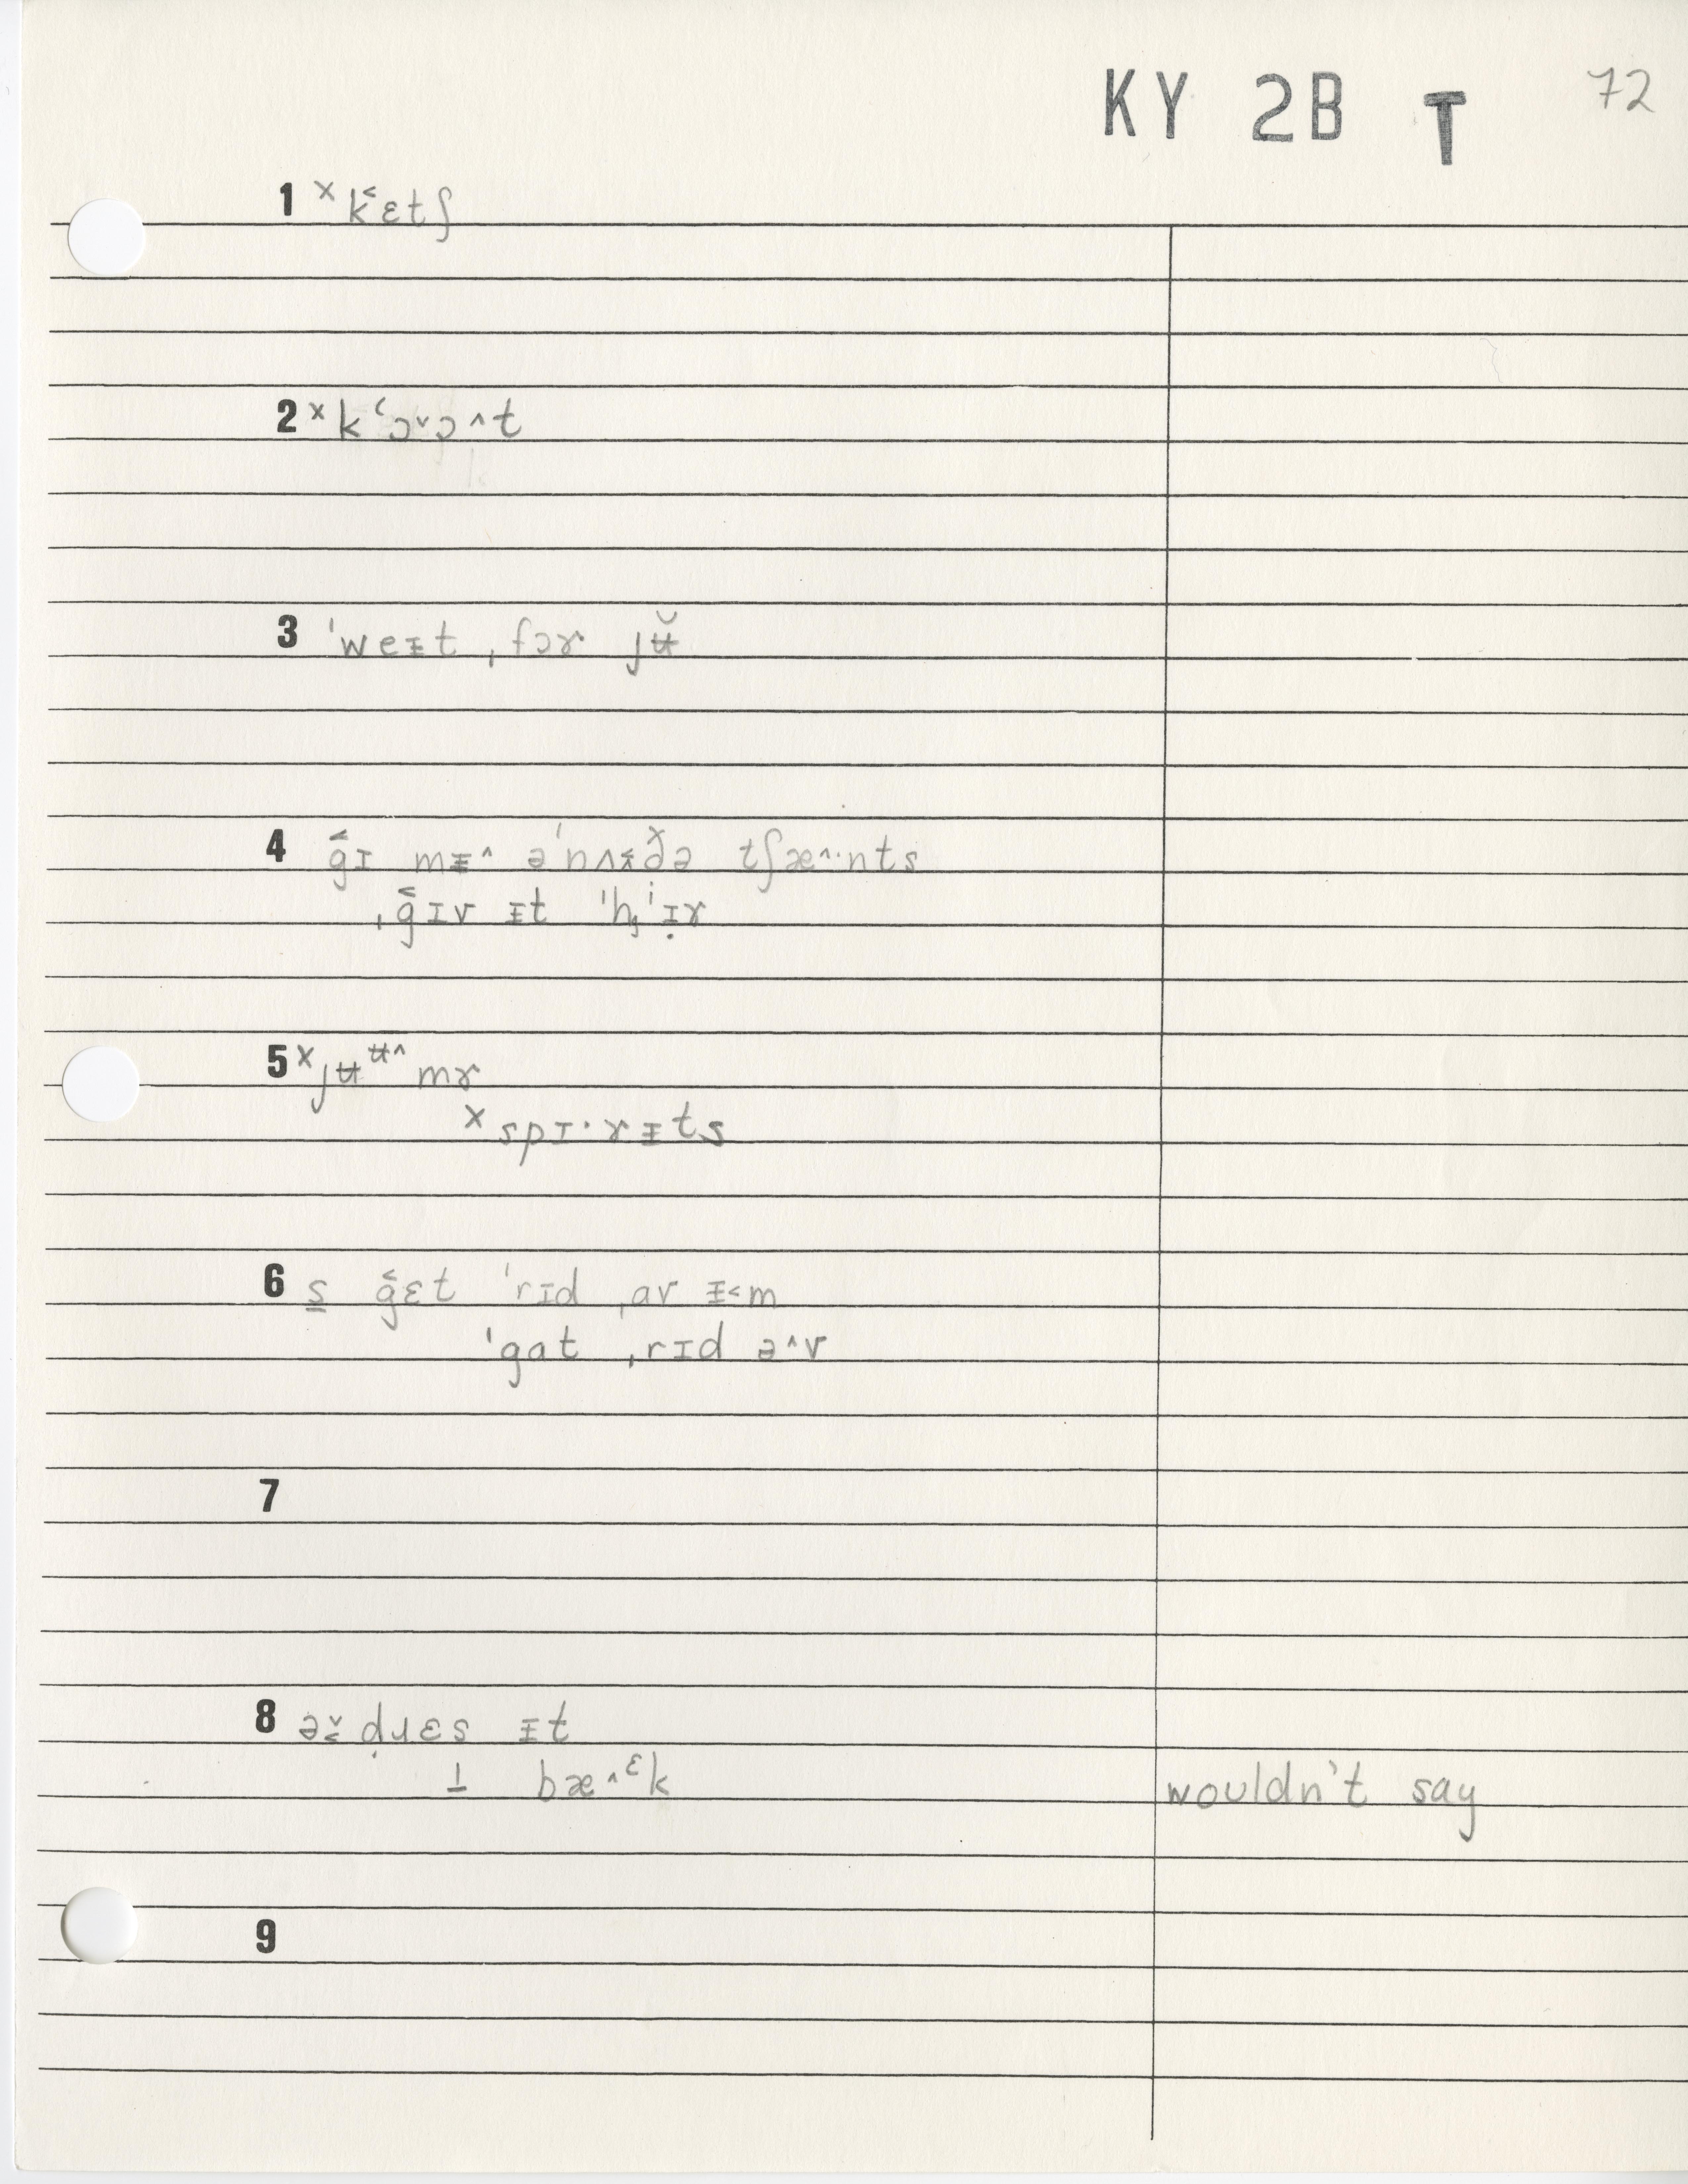 KY 2B T 72
1 ˣk̬ɛtʃ
2 ˣkʻɔ˅ɔ˄t
3 ˈweᵻt ˌfɔɤ jʉ̆
4 g̬ɪ mᵻ˄ əˈnʌðə tʃæ˄·nts
ˌg̬ɪv ᵻt ˈhᶨɪ̣ɤ
5 ˣjʉᵘ̵˄mɤ
ˣspɪ·ɤᵻts
6 s̲ g̬ɛt ˈrɪd ˌav ᵻ˂m
ˈgat ˌrɪd ə˄v
7
8 ə dɹɛs ᵻt
⊥ bæ˄ᵋk wouldn't say
9